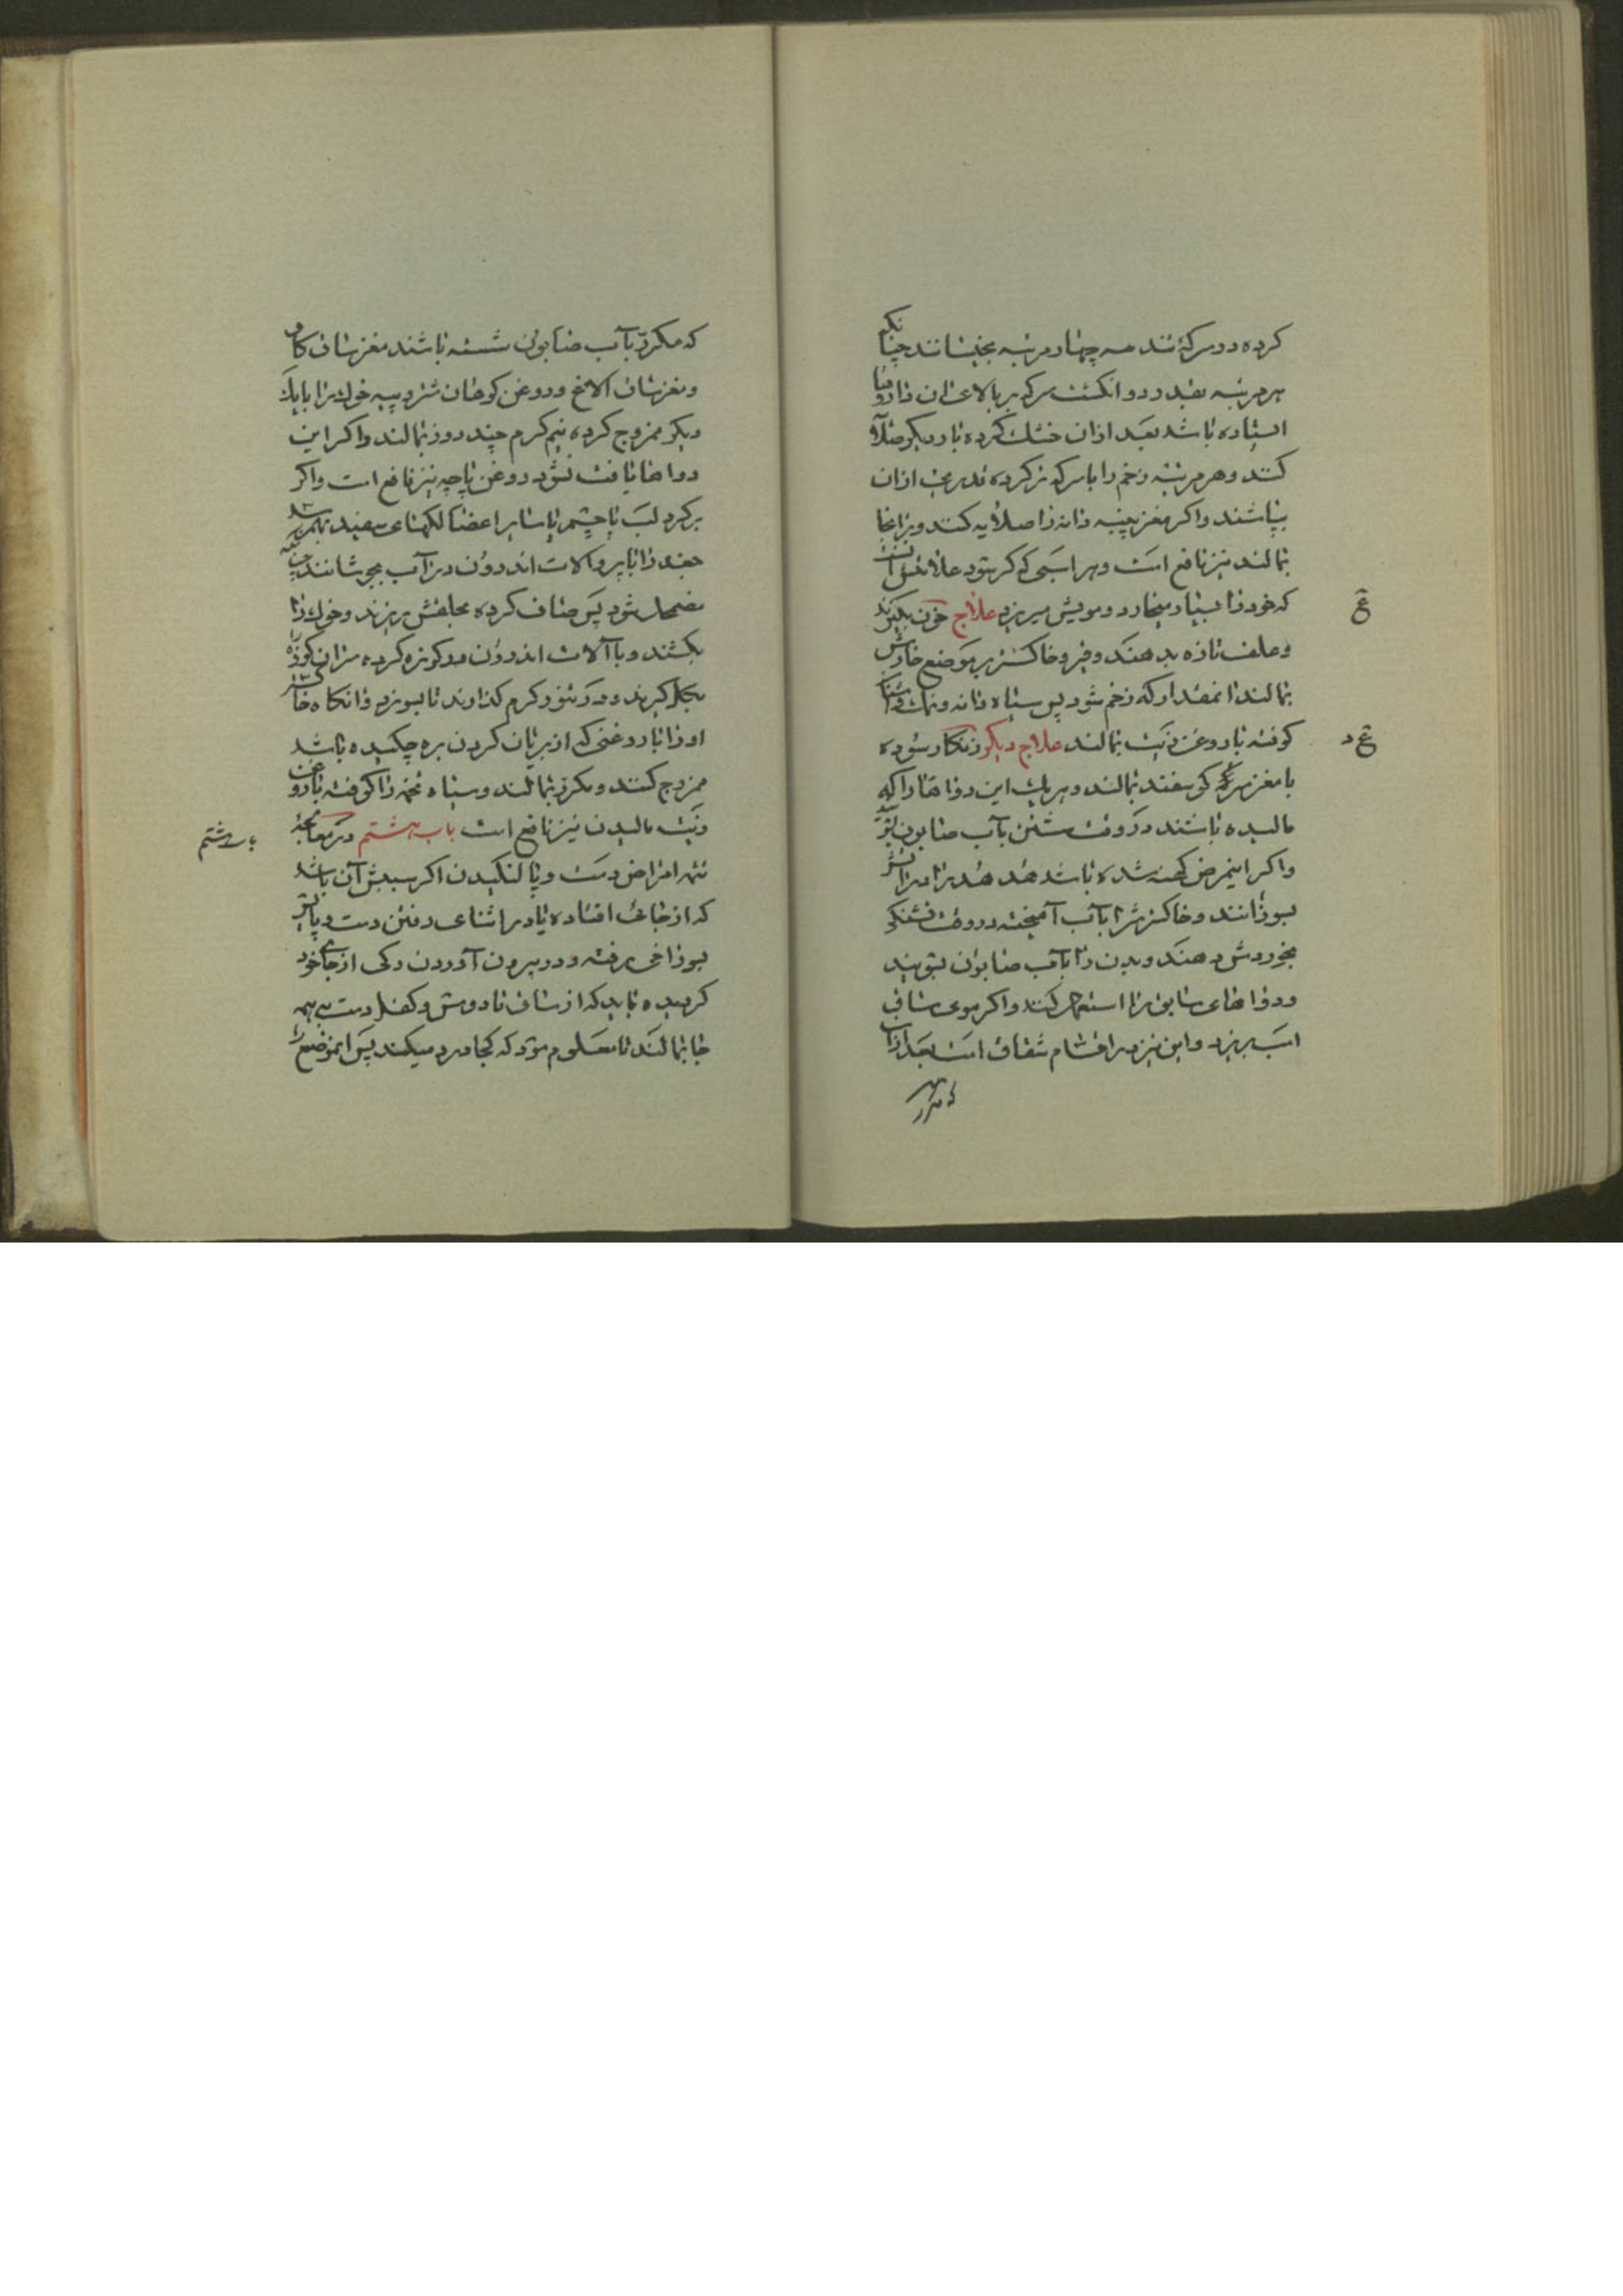 کرده در سرکهٔ تند سه چهار مرتبه بخیسانند چنانکه
هر مرتبه بقدر دو انگشت سرکه بر بالای ان داروها
استاده باشد بعد ازان خشک کرده بار دیگر صلایه
کنند و هر مرتبه زخم را با سرکه تر کرده قدری ازان
بپاشند و اگر مغز پنبه دانه را صلایه کنند و بر انجا
بمالند نیز نافع است و هر اسبی که گر شود علامتش انست
که خود را بسیار میخارد و مویش میریزد علاج خون بگیرند
و علف تازه بدهند و قیر و خاکستر بر موضع خارش
بمالند انمقدار که زخم شود پس سیاه دانه و نمک
کوفته با روغن زیت بمالند علاج دیگر زنگار سوده
با مغز سر گوسفند بمالند و هر یک این دواها را که
مالیده باشند در وقت شستن بآب صابون بشویند
و اگر اینمرض کهنه شده باشد هدهد را در آتش
بسوزانند و خاکسترش را بآب آمیخته در وقت تشنگی
بخوردش دهند و بدن را بآب صابون بشویند
و دواهای سابق را استعمال کنند و اگر موی ساق
اسب بریزد و این نیز در اقسام شقاق است بعد ازان
که مکرر
ع
ع د
که مکرر بآب صابون شسته باشند مغز ساق گاو
و مغز ساق الاغ و روغن کوهان شتر و پیه خوک را با یک
دیگر ممزوج کرده نیم گرم چند روز بمالند و اگر این
دواها یافت نشود روغن پاچه نیز نافع است و اگر
بر گرد لب یا چشم یا سایر اعضا لکهای سفید بهم رسد
جغد را با پر و الات اندرون در آب بجوشانند چنانکه
مضمحل شود پس صاف کرده بحلقش بریزند و خوک را
بکشند و با آلات اندرون در کوزه کرده سر ان کوزه را
بگل گیرند و در تنور گرم گذارند تا بسوزد و انگاه خاکستر
او را با روغنی که از بریان کردن بره چکیده باشد
ممزوج کنند و مکرر بمالند و سیاه تخمه را کوفته با روغن
زیت مالیدن نیز نافع است باب هشتم در معالجهٔ
تتمه امراض دست و پا لنگیدن اگر سببش آن باشد
که از جائی افتاده یا در اثنای رفتن دست و پایش
بسوراخی رفته و در بیرون آوردن رگی از جای خود
گردیده باید که از ساق تا دوش و کفل دست بر همه
جا بمالند تا معلوم شود که کجا درد میکند پس انموضع را
باب هشتم